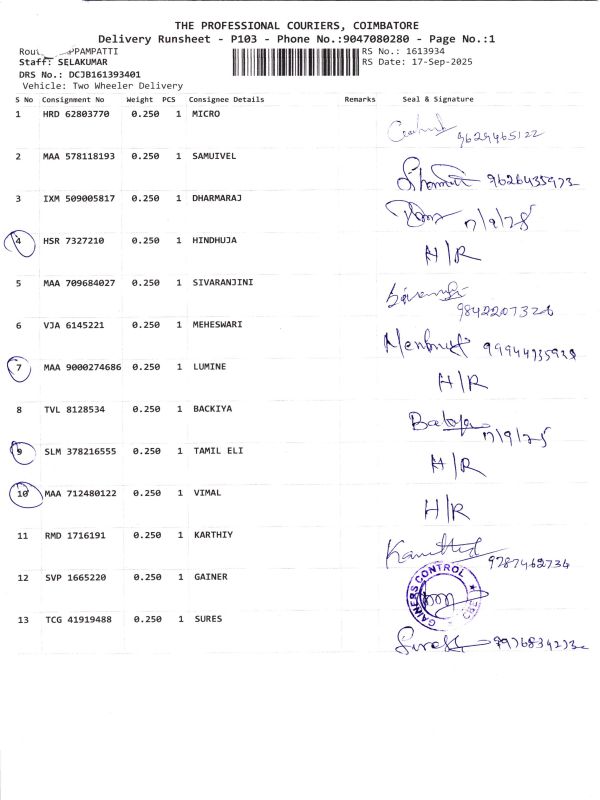 THE PROFESSIONAL COURIERS, COIMBATORE
Delivery Runsheet - P103 - Phone No.:9047080280 - Page No.:1
PAMPATTI
RS No.: 1613934
Staff: SELAKUMAR
RS Date: 17-Sep-2025
DRS No.: DCJB161393401
Vehicle: Two Wheeler Delivery
S No Consignment No Weight PCS Consignee Details Remarks Seal & Signature
1 HRD 62803770 0.250 1 MICRO
9629465122
2 MAA 578118193 0.250 1 SAMUIVEL
9626435973
3 IXM 509005817 0.250 1 DHARMARAJ
17/9/25
4 HSR 7327210 0.250 1 HINDHUJA
H/R
5 MAA 709684027 0.250 1 SIVARANJINI
9842207326
6 VJA 6145221 0.250 1 MEHESWARI
7 MAA 9000274686 0.250 1 LUMINE
H/R
8 TVL 8128534 0.250 1 BACKIYA
17/9/25
9 SLM 378216555 0.250 1 TAMIL ELI
H/R
10 MAA 712480122 0.250 1 VIMAL
H/R
11 RMD 1716191 0.250 1 KARTHIY
9787462734
12 SVP 1665220 0.250 1 GAINER
GAINERS CONTROL
CBE
13 TCG 41919488 0.250 1 SURES
Suresh